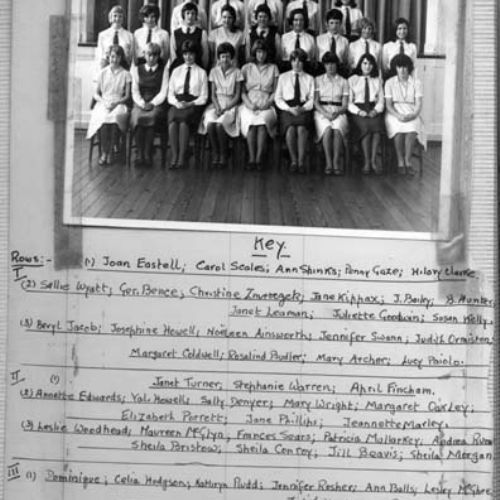 Key
Rows:- (1) Joan Eastell; Carol Scales; Ann Shinks; Penny Gaze; Hilary Clarke
I
(2) Sellie Wyatt; Ger. Bence; Christine Jane Kippax; J. Bailey; B. Hunter
Janet Leaman; Juliette Goodwin; Susan Kelly.
(3) Beryl Jacob; Josephine Howell; Noreen Ainsworth; Jennifer Swann; Judith Ormiston
Margaret Coldwell; Rosalind Pudler; Mary Archer; Lucy Paiola.
II (1) Janet Turner; Stephanie Warren; April Fincham.
(2) Annette Edwards; Val. Howells Sally Denyer; Mary Wright; Margaret Oakley;
Elizabeth Perrett; Jane Phillips; Jeannette Marley.
(3) Leslie Woodhead; Maureen McGlyn; Frances Sears; Patricia Mullarkey, Andrea
Sheila Bristow; Sheila Conroy; Jill Beavis; Sheila Morgan
III (1) Dominique; Celia Hodgson; Kathryn Rudd; Jennifer Rosher; Ann Balls; Lesley